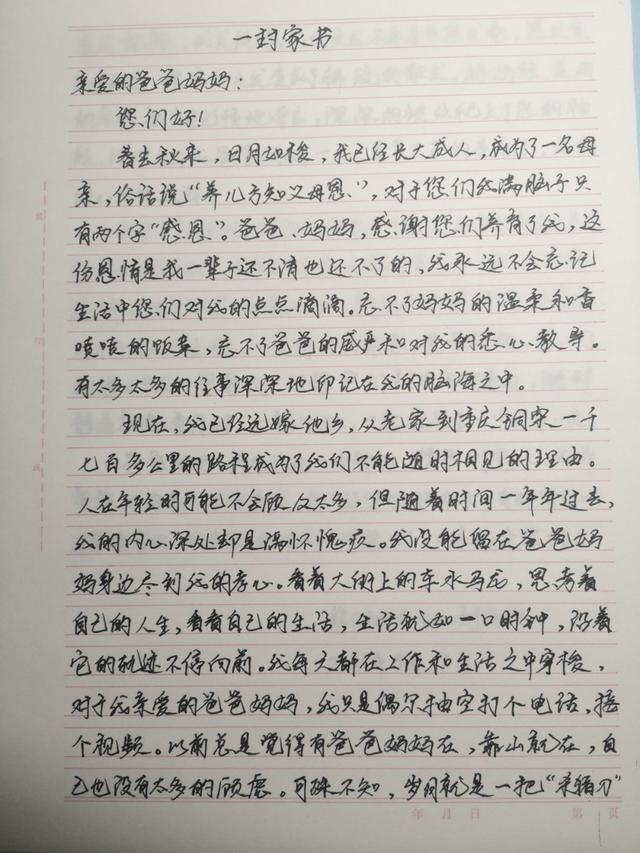 一封家书
亲爱的爸爸妈妈：
您们好！
春去秋来，日月如梭，我已经长大成人，成为了一名母
亲，俗话说“养儿方知父母恩”，对于您们我满脑子只
有两个字“感恩”。爸爸、妈妈，感谢您们养育了我，这
份恩情是我一辈子还不清也还不了的，我永远不会忘记
生活中您们对我的点点滴滴。忘不了妈妈的温柔和香
喷喷的饭菜，忘不了爸爸的威严和对我的悉心教导。
有太多太多的往事深深地印记在我的脑海之中。
现在，我已经远嫁他乡，从老家到重庆铜梁一千
七百多公里的路程成为了我们不能随时相见的理由。
人在年轻时可能不会顾及太多，但随着时间一年年过去，
我的内心深处却是满怀愧疚。我没能留在爸爸妈
妈身边尽到我的孝心。看着大街上的车水马龙，思考着
自己的人生，看看自己的生活，生活犹如一口时钟，沿着
它的轨迹不停向前。我每天都在工作和生活之中穿梭，
对于我亲爱的爸爸妈妈，我只是偶尔抽空打个电话，接
个视频。以前总是觉得有爸爸妈妈在，靠山就在，自
己也没有太多的顾虑。可殊不知，岁月就是一把“杀猪刀”
年 月 日 第 页